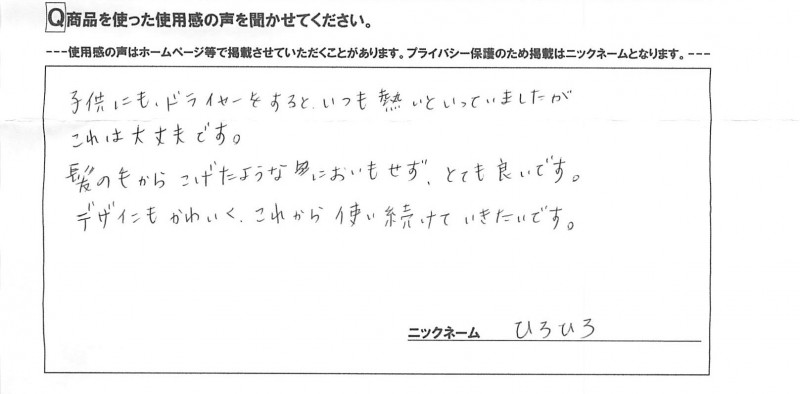 Q商品を使った使用感の声を聞かせてください。
---使用感の声はホームページ等で掲載させていただくことがあります。プライバシー保護のため掲載はニックネームとなります。---
子供にも、ドライヤーをすると、いつも熱いといっていましたが
これは大丈夫です。
髪の毛から こげたような においもせず、とても良いです。
デザインもかわいく、これから使い続けていきたいです。
ニックネーム ひろひろ